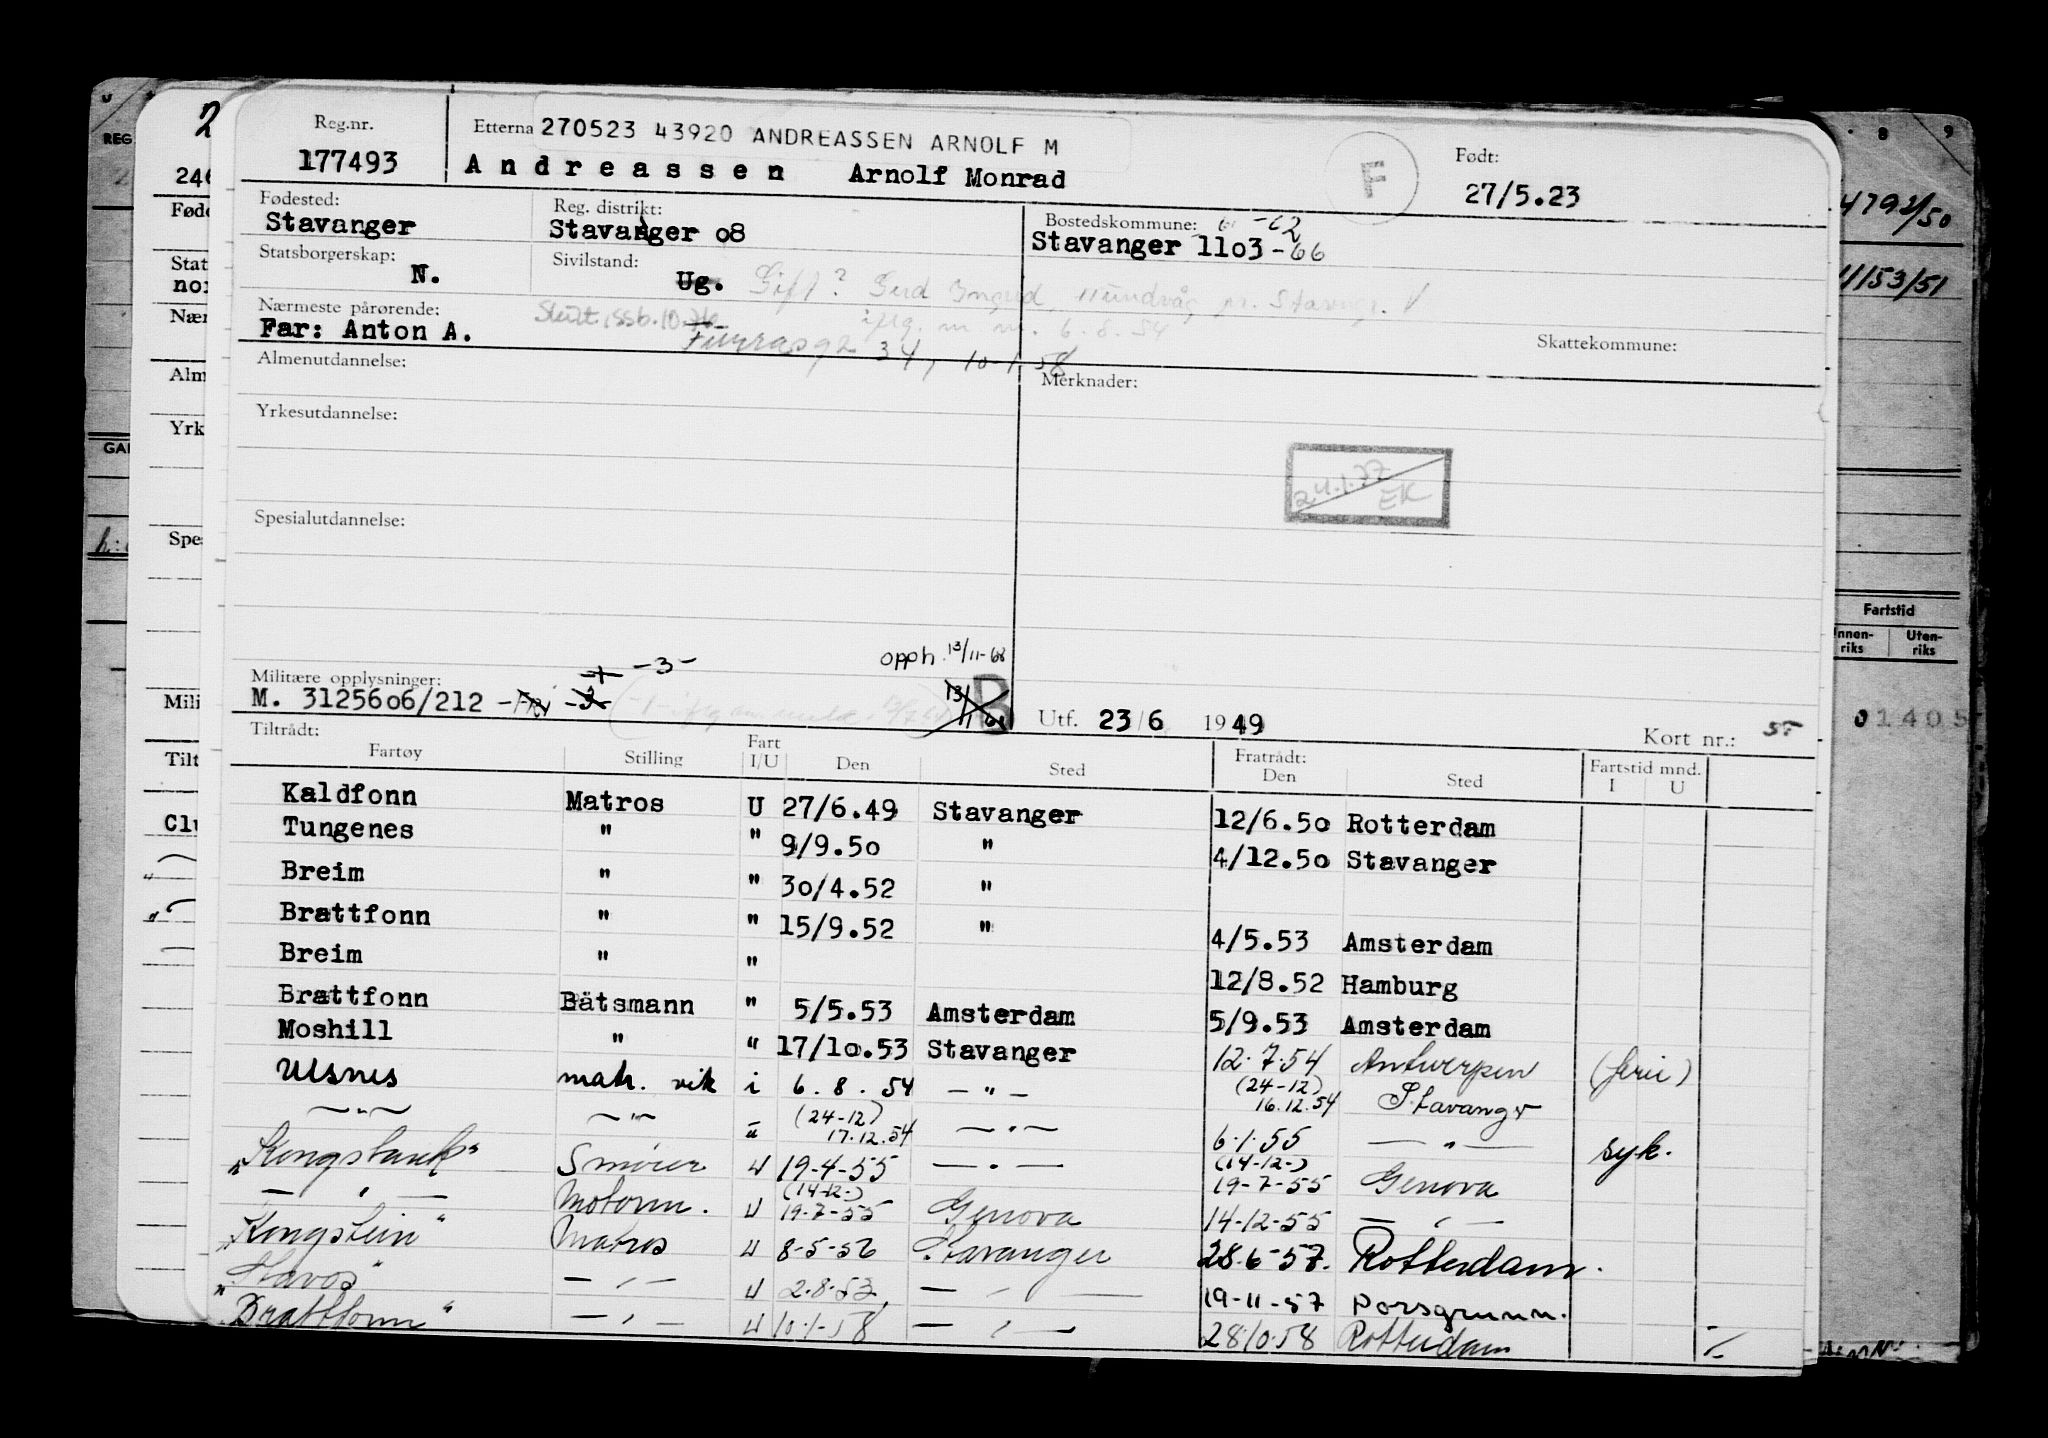 Reg.nr. Etterna 270523 43920 ANDREASSEN ARNOLF M Født:
177493 Andreassen Arnolf Monrad F 27/5.23
Fødested: Reg. distrikt: Bostedskommune: -62
Stavanger Stavanger 08 Stavanger 1103 -66
Statsborgerskap: Sivilstand:
N. Ug. Gift? Gerd Ingrid, Hundvåg, pr. Stavngr. V
Nærmeste pårørende: iflg. m.m. 6.8.54
Far: Anton A. Furrasgt 34, 10-1-58 Skattekommune:
Almenutdannelse: Merknader:
Yrkesutdannelse:
24.1.77 EK
Spesialutdannelse:
opph. 13/11-68
Militære opplysninger: -3-
M. 3125606/212 -Fri B 13/11 68 Utf. 23/6 1949
Tiltrådt: Kort nr.:
Fartøy Stilling Fart I/U Den Sted Fratrådt: Den Sted Fartstid mnd. I U
Kaldfonn Matros U 27/6.49 Stavanger 12/6.50 Rotterdam
Tungenes " " 9/9.50 " 4/12.50 Stavanger
Breim " " 30/4.52 "
Brattfonn " " 15/9.52 " 4/5.53 Amsterdam
Breim " " 12/8.52 Hamburg
Brattfonn Båtsmann " 5/5.53 Amsterdam 5/9.53 Amsterdam
Moshill " " 17/10.53 Stavanger 12.7.54 Antwerpen (ferie)
Ulsnes matr. vik i 6.8.54 — " — (24-12) 16.12.54 Stavanger
— " — — " — " (24-12) 17.12.54 — " — 6.1.55 — " — syk.
"Kongstank" Smører U 19-4-55 — " — (14-12-) 19-7-55 Genova
— " — Motorm. U (14-12-) 19-7-55 Genova 14-12-55 — " —
"Kongstein" Matros U 8-5-56 Stavanger 28.6-57. Rotterdam.
"Stavos" — " — U 2.8.53 — " — 19-11-57 Porsgrunn.
"Brattfonn" — " — U 10.1-58 — " — 28.10.58 Rotterdam
REG
246
Føde
Stat
nor
Nær
Alm
Yrk
GAI
Spe
Mili
Tilt
Clu
8 9
4792/50
1153/51
Fartstid
Innen-riks Uten-riks
01405